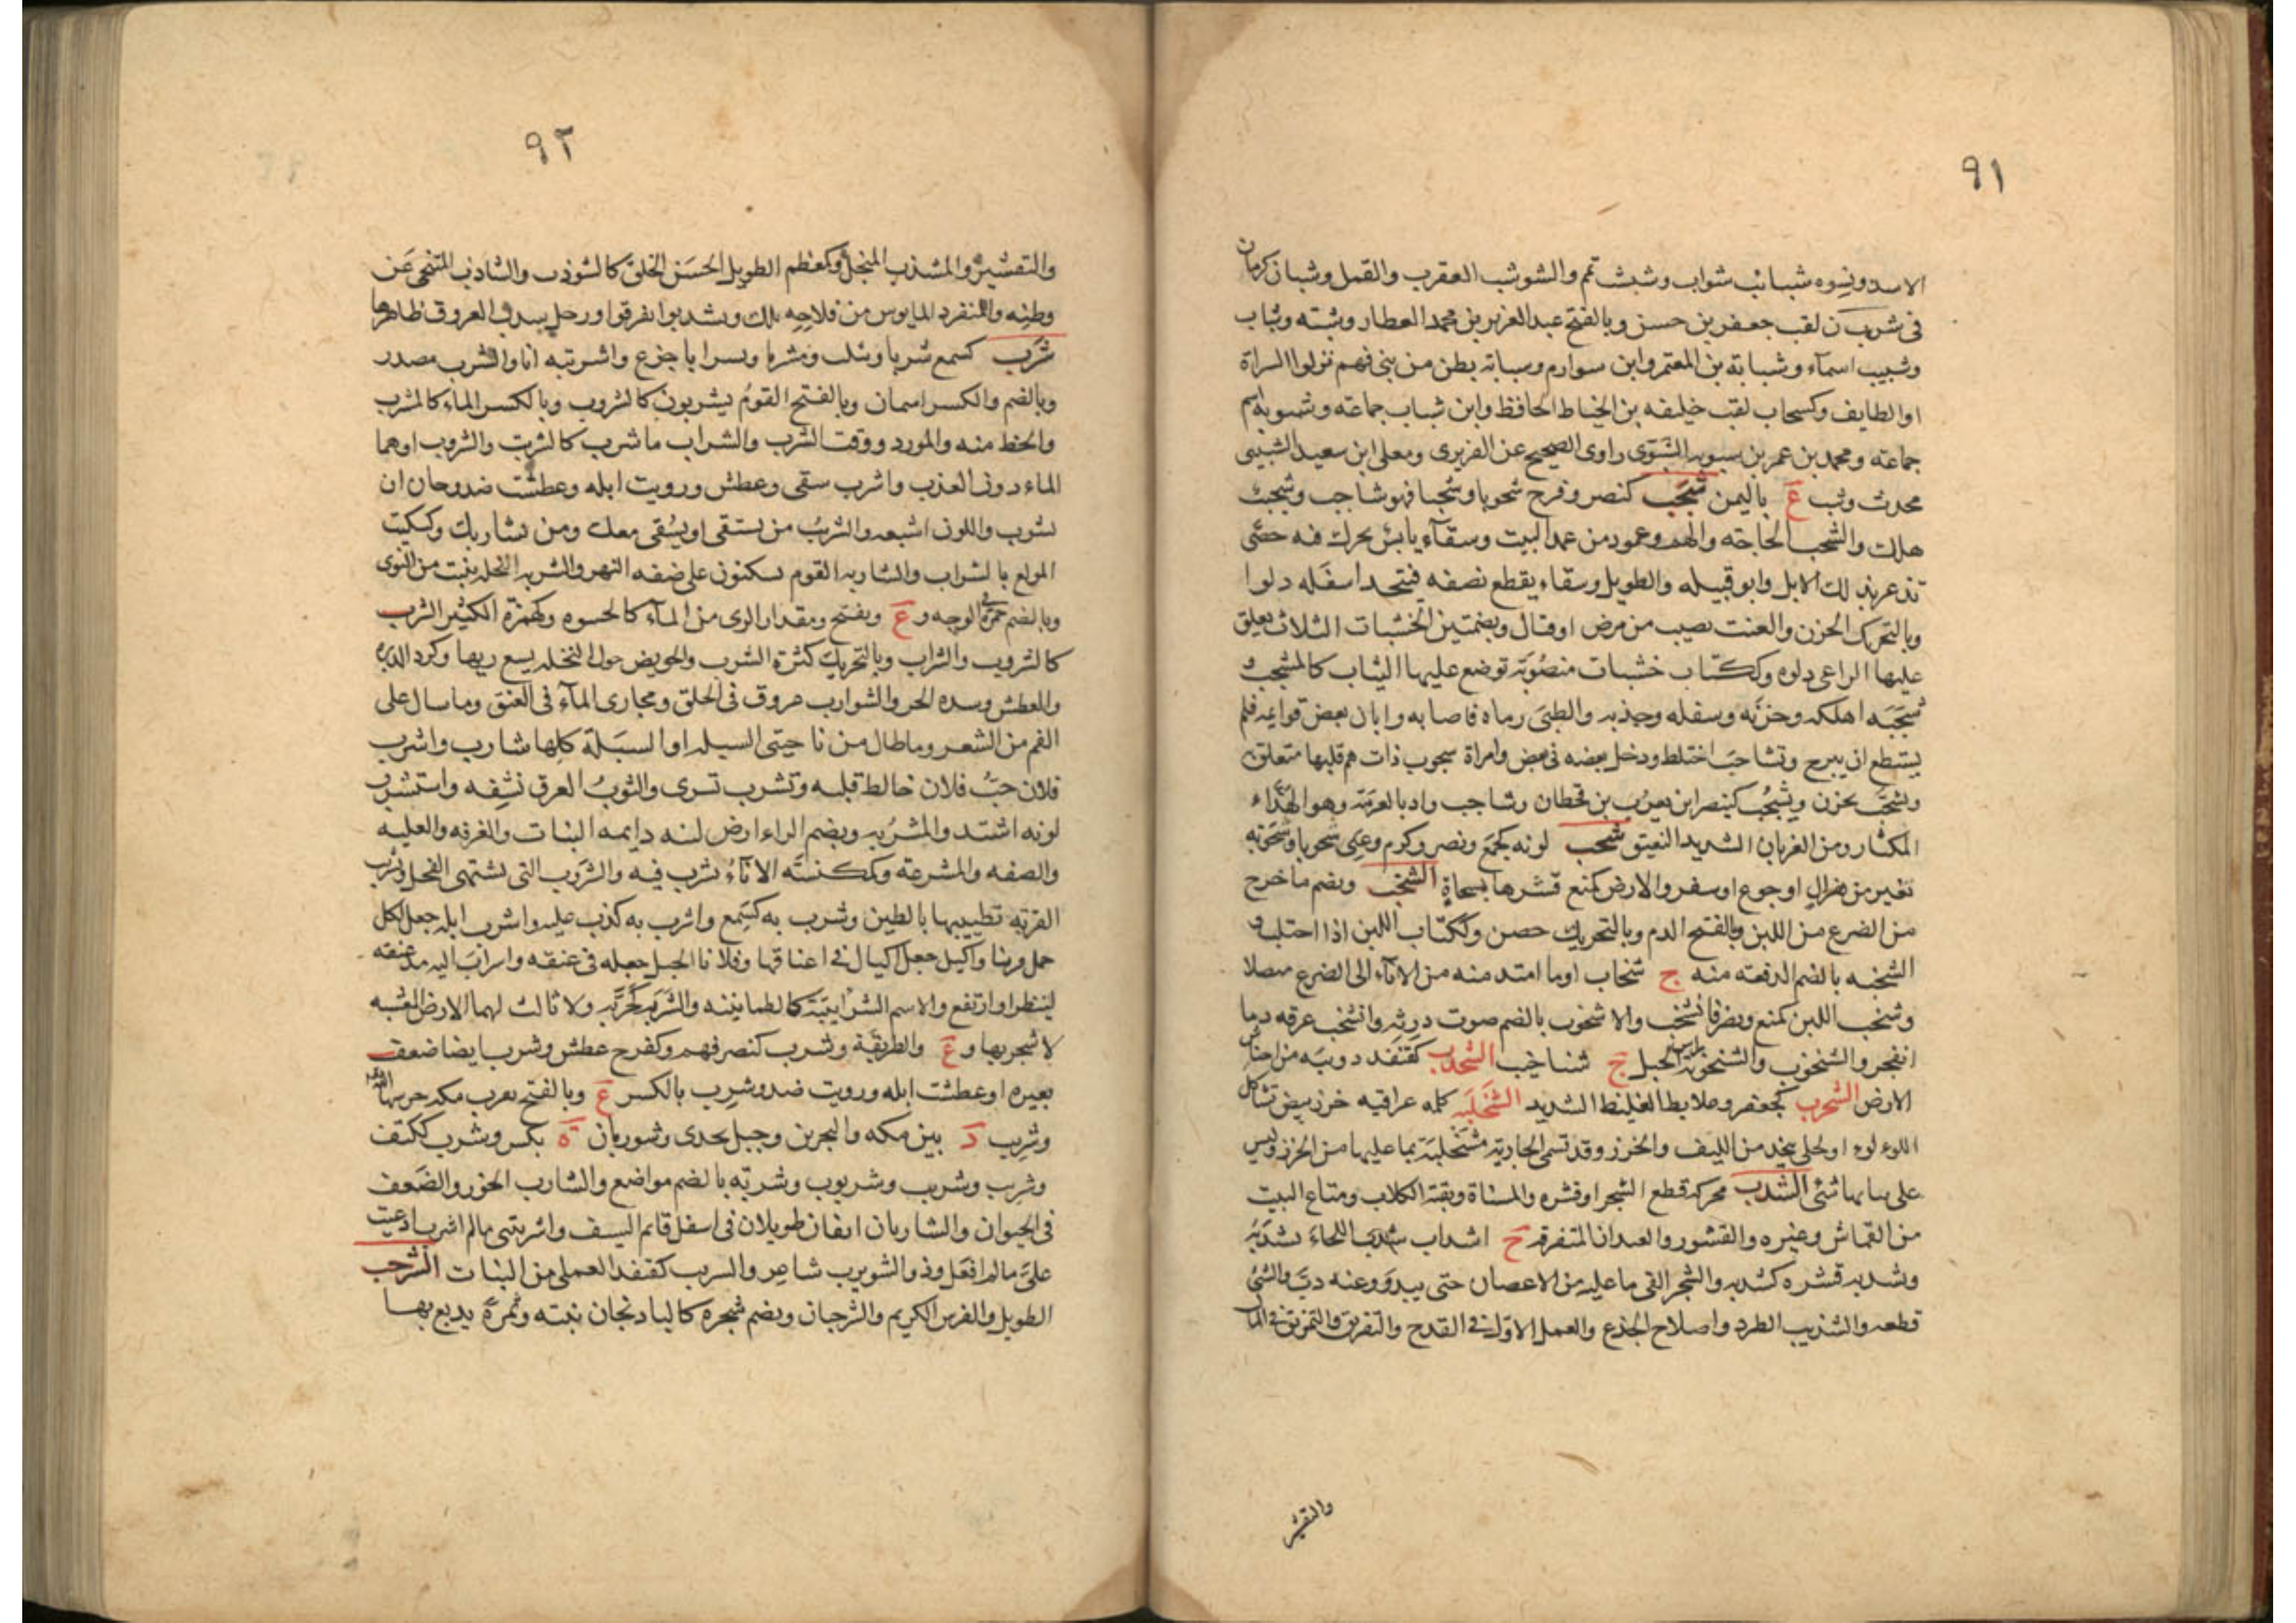 ٩١
الاسد ونسوة شبائب شواب وشبشب تمم والشوشب العقرب والقمل وشبان كرمان
فى شرب ن لقب جعفر بن حسن وبالفتح عبد العزيز بن محمد العطار وشبة وشاب
وشبيب اسماء وشبابة بن المعتمر وابن سوار م وشبابة بطن من بنى فهم نزلوا السراة
او الطايف وكسحاب لقب خليفه بن الخياط الحافظ وابن شباب جماعته وشبوية اسم
جماعته ومحمد بن عمر بن سبويه الشبوى راوى الصحيح عن الفربرى ومعلى ابن سعيد الشبيبى
محدث وشب ع باليمن شجب كنصر وفرح شجوبا وشجبا فهو شاجب وشجب
هلك والشجب الحاجته والهم وعمود من عمد البيت وسقاء يابس يحرك فيه حصى
تذعر بذلك الابل وابو قبيله والطويل وسقاء يقطع نصفه فيتخذ اسفله دلوا
وبالتحريك الحزن والعنت يصيب من مرض او قتال وبضمتين الخشبات الثلاث يعلق
عليها الراعى دلوه وككتاب خشبات منصوبة توضع عليها الثياب كالمشجب و
شجبه اهلكه وحزنه وشغله وجذبه والظبى رماه فاصابه وابان بعض قوائمه فلم
يستطع ان يبرح وتشاجب اختلط ودخل بعضه فى بعض وامراة شجوب ذات هم قلبها متعلق به
وتشجب تحزن ويشجب كينصر ابن يعرب بن قحطان وشاجب واد بالعرمة وهو الهذاء
المكثار ومن الغربان الشديد النعيق شحب لونه كجمع ونصر وكرم وعنى شحوبا وشحوبة
تغير من هزال او جوع او سفر والارض كمنع قشرها بمسحاة الشخب ويضم ما خرج
من الضرع من اللبن وبالفتح الدم وبالتحريك حصن وككتاب اللبن اذا احتلب و
الشخبه بالضم الدفعته منه ج شخاب او ما امتد منه من الاناء الى الضرع متصلا
وشخب اللبن كمنع ونصر فانشخب والاشخوب بالضم صوت درته وانشخب عرقه دما
انفجر والشنخوب والشنخوبة راس الجبل ج شناخيب الشخدب كقنفد دويبه من احناش
الارض الشخرب كجعفر وعلابط الغليظ الشديد الشخلبة كلمه عراقيه خرز بيض تشاكل
اللوء لوء او لحلى يتخذ من الليف والخرز وقد تسمى الجارية مشخلبة بما عليها من الخرز وليس
على بنايها شئى الشذب محركه قطع الشجر او قشره والمسناة وبقية الكلاب ومتاع البيت
من القماش وغيره والقشور والعيدان المتفرقة ج اشذاب شذب اللحاء يشذبه
وشذبه قشره كشذبه والشجر القى ما عليه من الاغصان حتى يبدو وعنه ذب والشئ
قطعه والتشذيب الطرد واصلاح الجذع والعمل الاول فى القدح والتفريق والتمزيق فى المال
والتقشير
٩٢
والتقشير والمشذب المنجل وكمعظم الطويل الحسن الخلق كالشوذب والشاذب المتنحى عن
وطنه والمنفرد المايوس من فلاحه بذلك وتشذبوا تفرقوا ورجل شذب العروق ظاهرها
شرب كسمع شربا ويثلث ومشربا وتشرابا جرع واشربته انا والشرب مصدر
وبالضم والكسر اسمان وبالفتح القوم يشربون كالشروب وبالكسر الماء كالمشرب
والحظ منه والمورد ووقت الشرب والشراب ما شرب كالشريب والشروب او هما
الماء دون العذب واشرب سقى وعطش ورويت ابله وعطشت ضد وحان ان
تشرب واللون اشبعه والشريب من يستقى او يسقى معك ومن يشاربك وكسكيت
المولع بالشراب والشاربه القوم يسكنون على ضفه النهر والشربه النخله تنبت من النوى
وبالضم حمرة فى الوجه و ع ويفتح ومقدار الرى من الماء كالحسوه وكهمزة الكثير الشرب
كالشروب والشراب وبالتحريك كثرة الشرب والحويض حول النخله يسع ريها وكرد الدبره
والعطش وشده الحر والشوارب عروق فى الحلق ومجارى الماء فى العنق وما سال على
الفم من الشعر وما طال من ناحيتى السبله او السبلة كلها شارب واشرب
فلان حب فلان خالط قلبه وتشرب تسرى والثوب العرق نشفه واستشرب
لونه اشتد والمشربه وبضم الراء ارض لينه دايمه النبات والغرفه والعليه
والصفه والمشرعة وكمكنسة الاناء يشرب فيه والشروب التى تشتهى الفحل وشرب
القربة تطييبها بالطين وشرب به كسمع واشرب به كذب عليه واشرب ابله جعل لكل
جمل قرينا والخيل جعل الحبال فى اعناقها وفلانا الحبل جعله فى عنقه واشراب اليه مد عنقه
لينظر او ارتفع والاسم الشرابيبة كالطمانينه والشربة كجربة ولا ثالث لهما الارض المعشبه
لا شجر بها و ع والطريقة وشرب كنصر فهم وكفرح عطش وشرب ايضا ضعف
بعيره او عطشت ابله ورويت ضد وشرب بالكسر ع وبالفتح بقرب مكه حرسها الله
وشريب د بين مكه والبحرين وجبل نجدى وشوربان ة بكس وشرب ككتف
وشرب وشريب وشربوب وشربة بالضم مواضع والشارب الخور والضعف
فى الحيوان والشاربان انفان طويلان فى اسفل قائم السيف واشربتنى مالم اشرب ادعيت
على مالم افعل وذو الشويرب شاعر والشربب كقنفد الغملى من النبات الشرجب
الطويل والفرس الكريم والشرجبان ويضم شجره كالباذنجان نبته وثمرة يدبغ بها